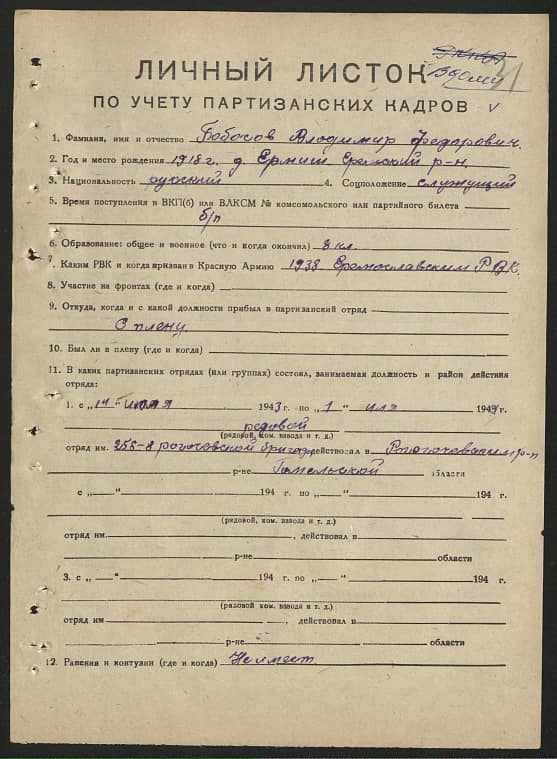 ЛИЧНЫЙ ЛИСТОК
ПО УЧЕТУ ПАРТИЗАНСКИХ КАДРОВ
1. Фамилия, имя и отчество Бобосов Владимир Федорович.
2. Год и место рождения 1918 г. д. Ермиш Ермский р-н
3. Национальность русский 4. Соцположение служущий
5. Время поступления в ВКП(б) или ВЛКСМ № комсомольского или партийного билета
б/п
6. Образование: общее и военное (что и когда окончил) 8 кл.
7. Каким РВК и когда призван в Красную Армию 1938 РВК.
8. Участие на фронтах (где и когда)
9. Откуда, когда и с какой должности прибыл в партизанский отряд
С плену
10. Был ли в плену (где и когда)
11. В каких партизанских отрядах (или группах) состоял, занимаемая должность и район действия
отряда:
1. с „14" 1943 г. по „1" 1944 г.
редовой
(рядовой, ком. взвода и т. д.)
отряд им. 255-й бригады действовал в р-н
р-не Гомельской области
с „—" 194 г. по „—" 194 г.
(рядовой, ком. взвода и т. д.)
отряд им. , действовал в
р-не области
3. с „—" 194 г. по „—" 194 г.
(рядовой ком. взвода и т. д.)
отряд им , действовал в
р-не области
12. Ранения и контузии (где и когда) Не имеет